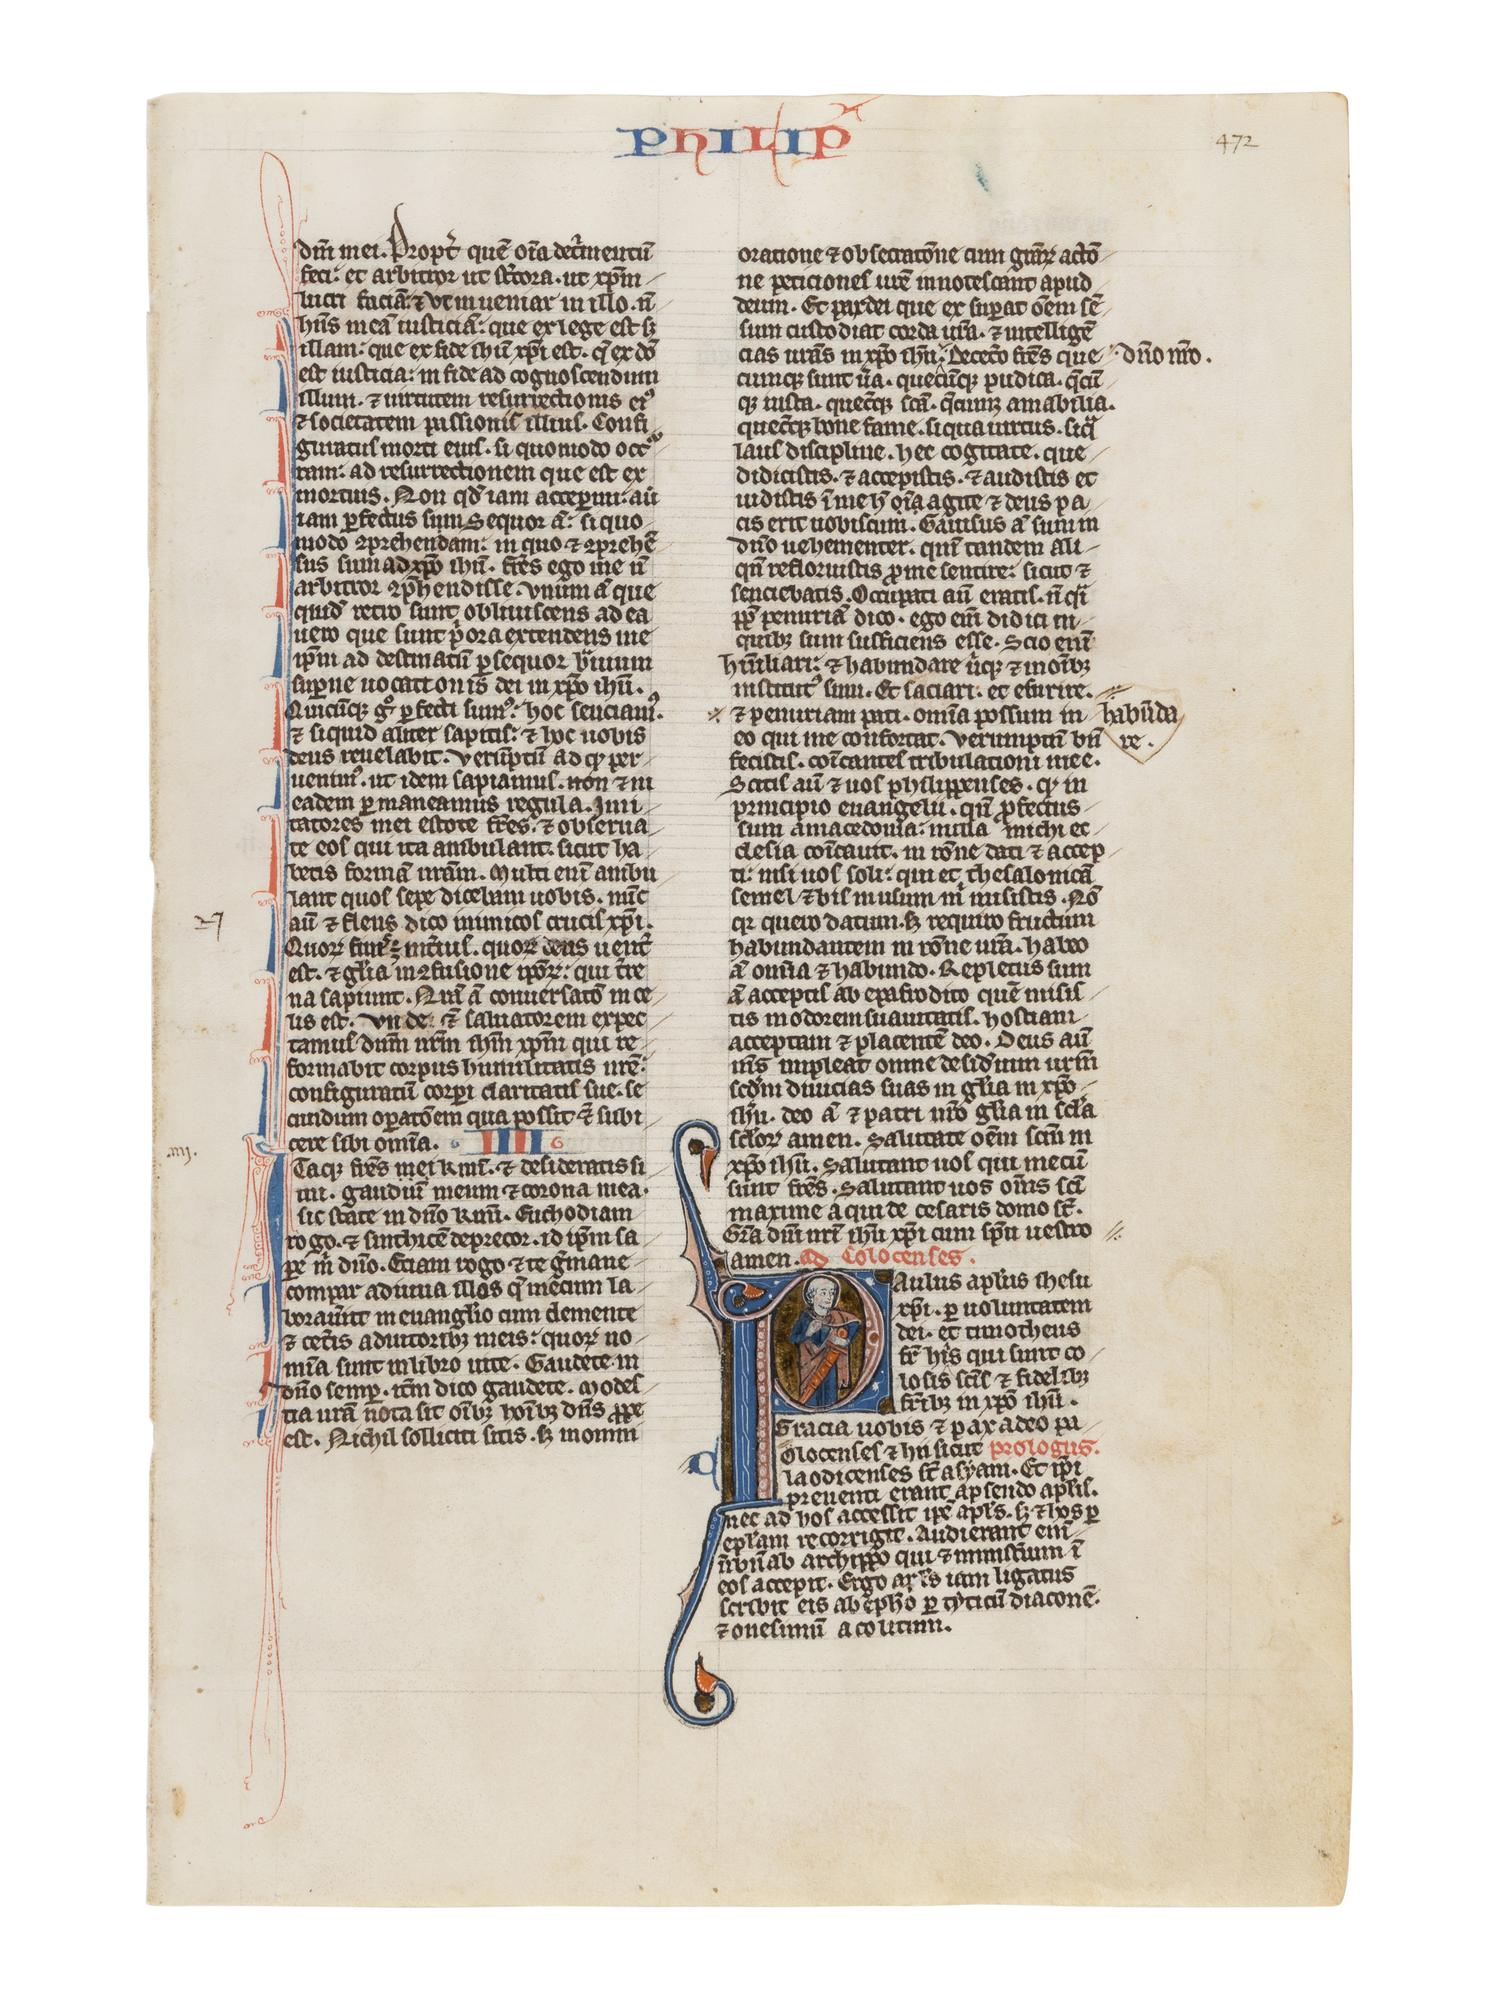 PHILIPP
472
dñi mei. Propt̃ quẽ oĩa det̃mentũ
feci: et arbitror ut st̃cora. ut xp̃m
lucri faciã: ⁊ ut inueniar in illo. ñ
hñs meã iusticiã: que ex lege est sꝫ
illam: que ex fide ihũ xp̃i est. q̃ ex dõ
est iusticia: in fide ad cognoscendum
illum. ⁊ uirtutem resurrectionis eiꝰ
⁊ societatem passionis illius. Confi
guratus morti eius. si quomodo occᵘʳ
ram: ad resurrectionem que est ex
mortuis. Non qđ iam acceperim: aũ
iam ꝑfectus sum Sequor ã: si quo
modo ꝯprehendam: in quo ⁊ ꝯprehẽ
sus sum ad xp̃o ihũ. fr̃es ego me ñ
arbitror ꝯp̃hendisse. Vnum ã que
quid̃ retro sunt obliuiscens ad ea
uero que sunt p̃ora extendens me
ip̃m ad destinatũ ꝑsequor b̃uium
sup̃ne uocationis dei in xp̃o ihũ.
Quicũqꝫ gͦ ꝑfecti sumꝰ: hoc senciamꝰ.
⁊ siquid aliter sapitis: ⁊ hoc uobis
deus reuelabit. Verũptũ ad qͥ per
uenimꝰ. ut idem sapiamus. non ⁊ in
eadem ꝑmaneamus regula. Imi
tatores mei estote fr̃es. ⁊ obserua
te eos qui ita ambulant. sicut ha
betis formã nr̃am. Multi enĩ ambu
lant quos sepe dicebam uobis. nũc
aũ ⁊ flens dico inimicos crucis xp̃i.
Quoꝝ finis int̃itus. quoꝝ deus uent̃
est. ⁊ gl̃ia in ꝯfusione ip̃oꝝ: qui t̃re
na sapiunt. Nr̃a ã conuersatõ in ce
lis est. Vn de: ⁊ saluatorem expec
tamus dñm nr̃m ihm̃ xp̃m qui re
formabit corpus humilitatis nr̃e:
configuratũ corpi claritatis sue. se
cundum op̃atõem qua possit ⁊̃ subi
cere sibi omĩa.
IIII
Itaqꝫ fr̃es mei kmĩ. ⁊ desideratissi
mi. gaudiũ meum ⁊ corona mea.
sic state in dño kmĩ. Euchodiam
rogo. ⁊ sinthicẽ deprecor. id ip̃m sa
pe in dño. Eciam rogo ⁊ te g̃mane
compar adiuua illas q̃ mecum la
borauer̃nt in euanglio cum clemente
⁊ cet̃is adiutoribꝫ meis: quoꝝ no
mĩa sunt in libro uite. Gaudete in
dño semꝑ. it̃m dico gaudete. Modes
tia ur̃a nota sit oĩbꝫ hoĩbꝫ dñs ꝓpe
est. Nichil solliciti sitis. sꝫ in omni
oratione ⁊ obsecratõne cum gr̃aꝝ actõ
ne peticiones ur̃e innotescant apud
deum. Et pax dei que exsuꝑat õem sẽ
sum custodiat corda ur̃a. ⁊ intelligẽ
cias ur̃as in xp̃o ihũ. De cet̃o fr̃es que
dño nr̃o.
cumqꝫ sunt ũa. quecũqꝫ pudica. q̃cũ
qꝫ iusta. quecũqꝫ sc̃a. q̃cumqꝫ amabilia.
quecũqꝫ bone fame. siqua uirtus. siq̃
laus discipline. hec cogitate. que
didicistis. ⁊ accepistis. ⁊ audistis et
uidistis ĩ me h̃ oĩa agite ⁊ deus pa
cis erit uobiscum. Gauisus ã sum in
dño uehementer. qm̃ tandem ali
qñ refloruistis ꝓ me sentire: sicut ⁊
senciebatis. Occupati aũ eratis. ñ q̃i
ꝓpt̃ penuriã dico. ego em̃ didici in
quibꝫ sum sufficiens esse. Scio enĩ
humiliari: ⁊ habundare ũiqꝫ ⁊ in oĩbꝫ
institutꝰ sum. Et saciari. et esurire.
⁊ penuriam pati. omĩa possum in
habũda
re.
eo qui me confortat. Verumptũ bñ
fecistis. coĩcantes tribulationi mee.
Scitis aũ ⁊ uos philippenses. qͥ in
principio euangelii. qñ ꝓfectus
sum a macedonia: nulla michi ec
clesia coĩcauit. in rõne dati ⁊ accep
ti: nisi uos soli: qui et thesalonicã
semel ⁊ bis in usum m̃ misistis. Nõ
qr̃ quero datum. sꝫ requiro fructum
habundantem in rõne ur̃a. habeo
ã omĩa ⁊ habundo. Repletus sum
ã acceptis ab epafrodito quẽ misis
tis in odorem suauitatis. hostiam
acceptam ⁊ placentẽ deo. Deus aũ
mẽs impleat omne desid̃ium ur̃m
scđm diuicias suas in gl̃ia in xp̃o
ihũ. deo ã ⁊ patri nr̃o gl̃ia in scl̃a
scl̃oꝝ amen. Salutate õem sc̃m in
xp̃o ihũ. Salutant uos qui mecũ
sunt fr̃es. Salutant uos om̃s sc̃i
maxime ã qui de cesaris domo st̃.
Gr̃a dñi nr̃i ihũ xp̃i cum sp̃u uestro
amen. Ad Colocenses.
Paulus apl̃us ihesu
xp̃i. ꝑ uoluntatem
dei. et timotheus
fr̃ his qui sunt co
losis sc̃is ⁊ fidelibꝫ
fr̃ibꝫ in xp̃o ihũ.
Gracia uobis ⁊ pax a deo pa
Colocenses ⁊ hii sicut prologus.
laodicenses st̃ asyani. Et ip̃i
preuenti erant apseudo apl̃is.
nec ad hos accessit ip̃e apl̃s. sꝫ ⁊ hos ꝑ
epl̃am recorrigit. Audierant em̃
ũbũ ab archippo qui ⁊ minist̃ium ĩ
eos accepit. Ergo apl̃s iam ligatus
scribit eis ab eph̃o ꝑ tyticũ diaconẽ.
⁊ onesimũ acolitum.
iiii.